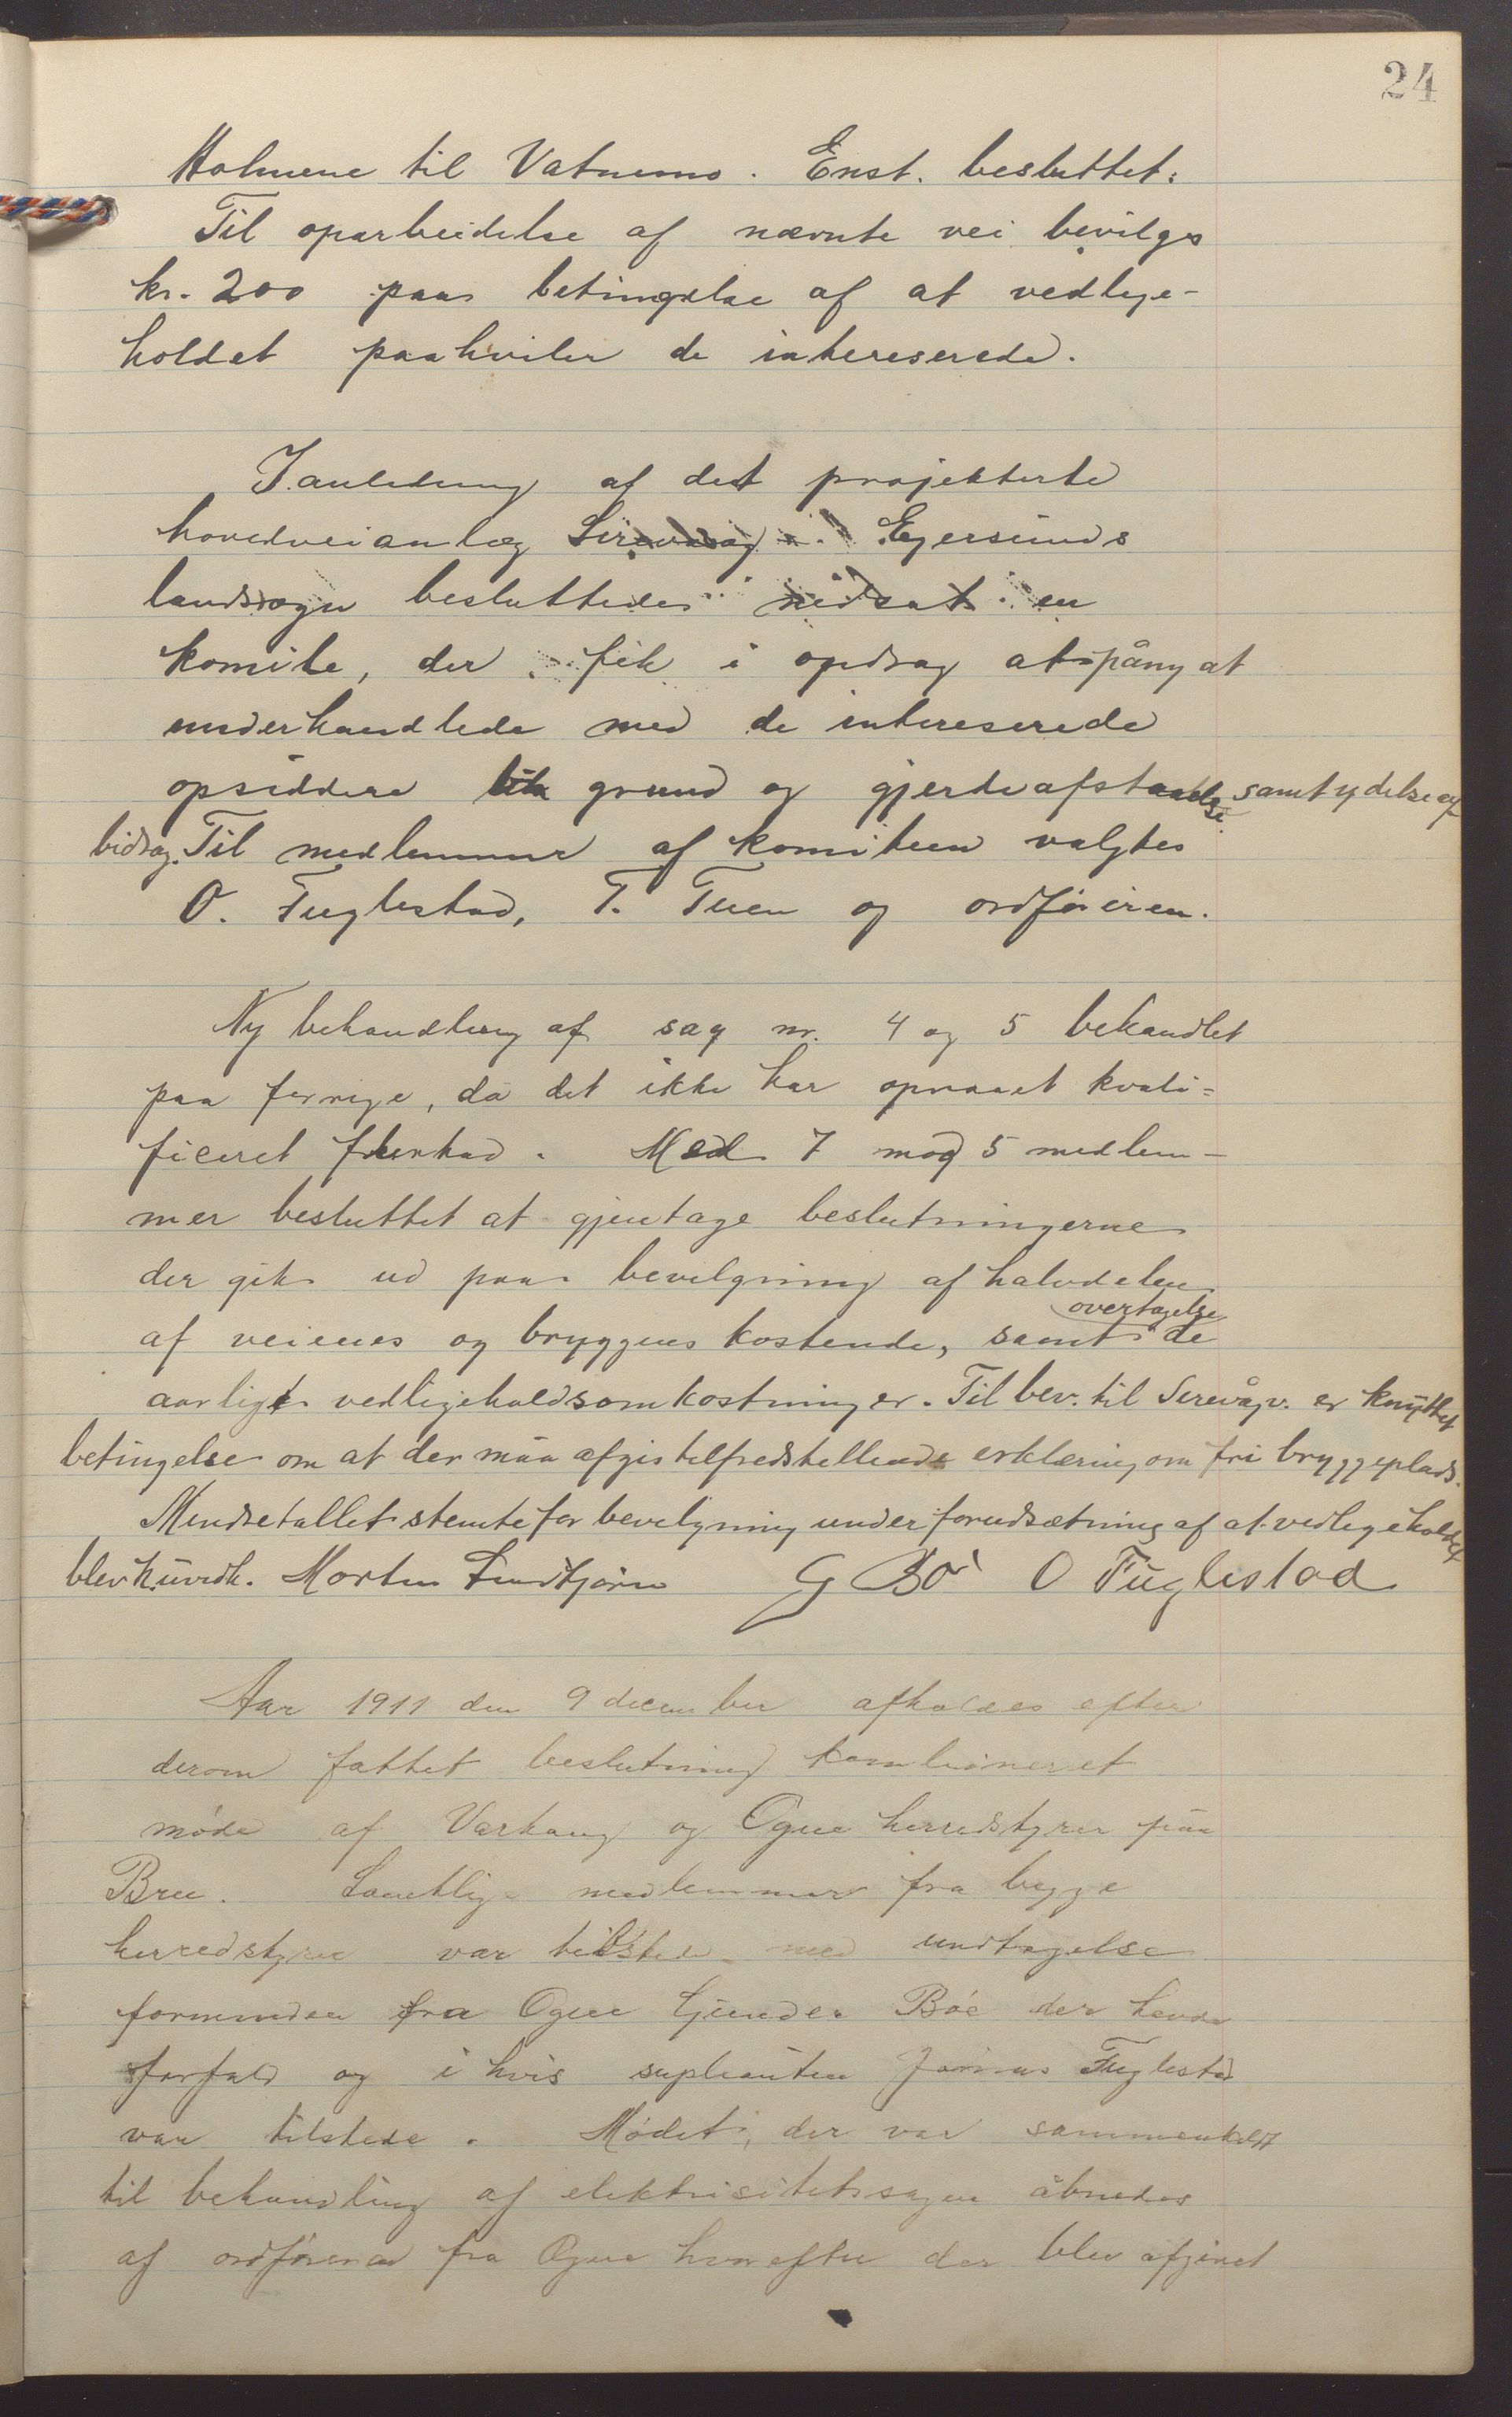 24
Holmene til Vatnemo. Enst. besluttet:
Til oparbeidelse af nævnte vei bevilges
kr. 200 paa betingelse af at vedlige-
holdet paahviler de intereserede.
I anledning af det projekterte
hovedveianlæg Sirevaag i Egersunds
landsogn besluttedes nedsat en
komite, der fik i opdrag at påny at
underhandlede med de intereserede
opsiddere grund og gjerdeafstaaelse samt ydelse af
bidrag. Til medlemmer af komiteen valgtes
O. Fuglestad, T. Tuen og ordføreren.
Ny behandling af sag nr. 4 og 5 behandlet
paa forrige, da det ikke har opnaaet kvali-
ficeret flerhed. Med 7 mod 5 medlem-
mer besluttet at gjentage beslutningerne
der gik ud paa bevilgning af halvdelen
af veienes og bryggens kostende, samt overtagelse de
aarlige vedligeholdsomkostninger. Til bev. til Sirevåg v. er knyttet
betingelse om at der maa afgis tilfredstillende erklæring om fri bryggeplads.
Mindretallet stemte for bevilgning under forudsætning af at vedligeholdet
blev h.uvedk. Morten G Bø O Fuglestad
Aar 1911 den 9 december afholdes efter
derom fattet beslutning kombineret
møde af Varhaug og Ogne herredstyrer paa
Bru. Samtlige medlemmer fra begge
herredstyrer var tilstede med undtagelse
formanden fra Ogne Gunder Bøe der havde
forfald og i hvis suplianten Jonas Fuglestad
var tilstede. Mødet, der var sammenkaldt
til behandling af elektrisitetssagen åbnedes
af ordføreren fra Ogne hvorefter der blev afgivet